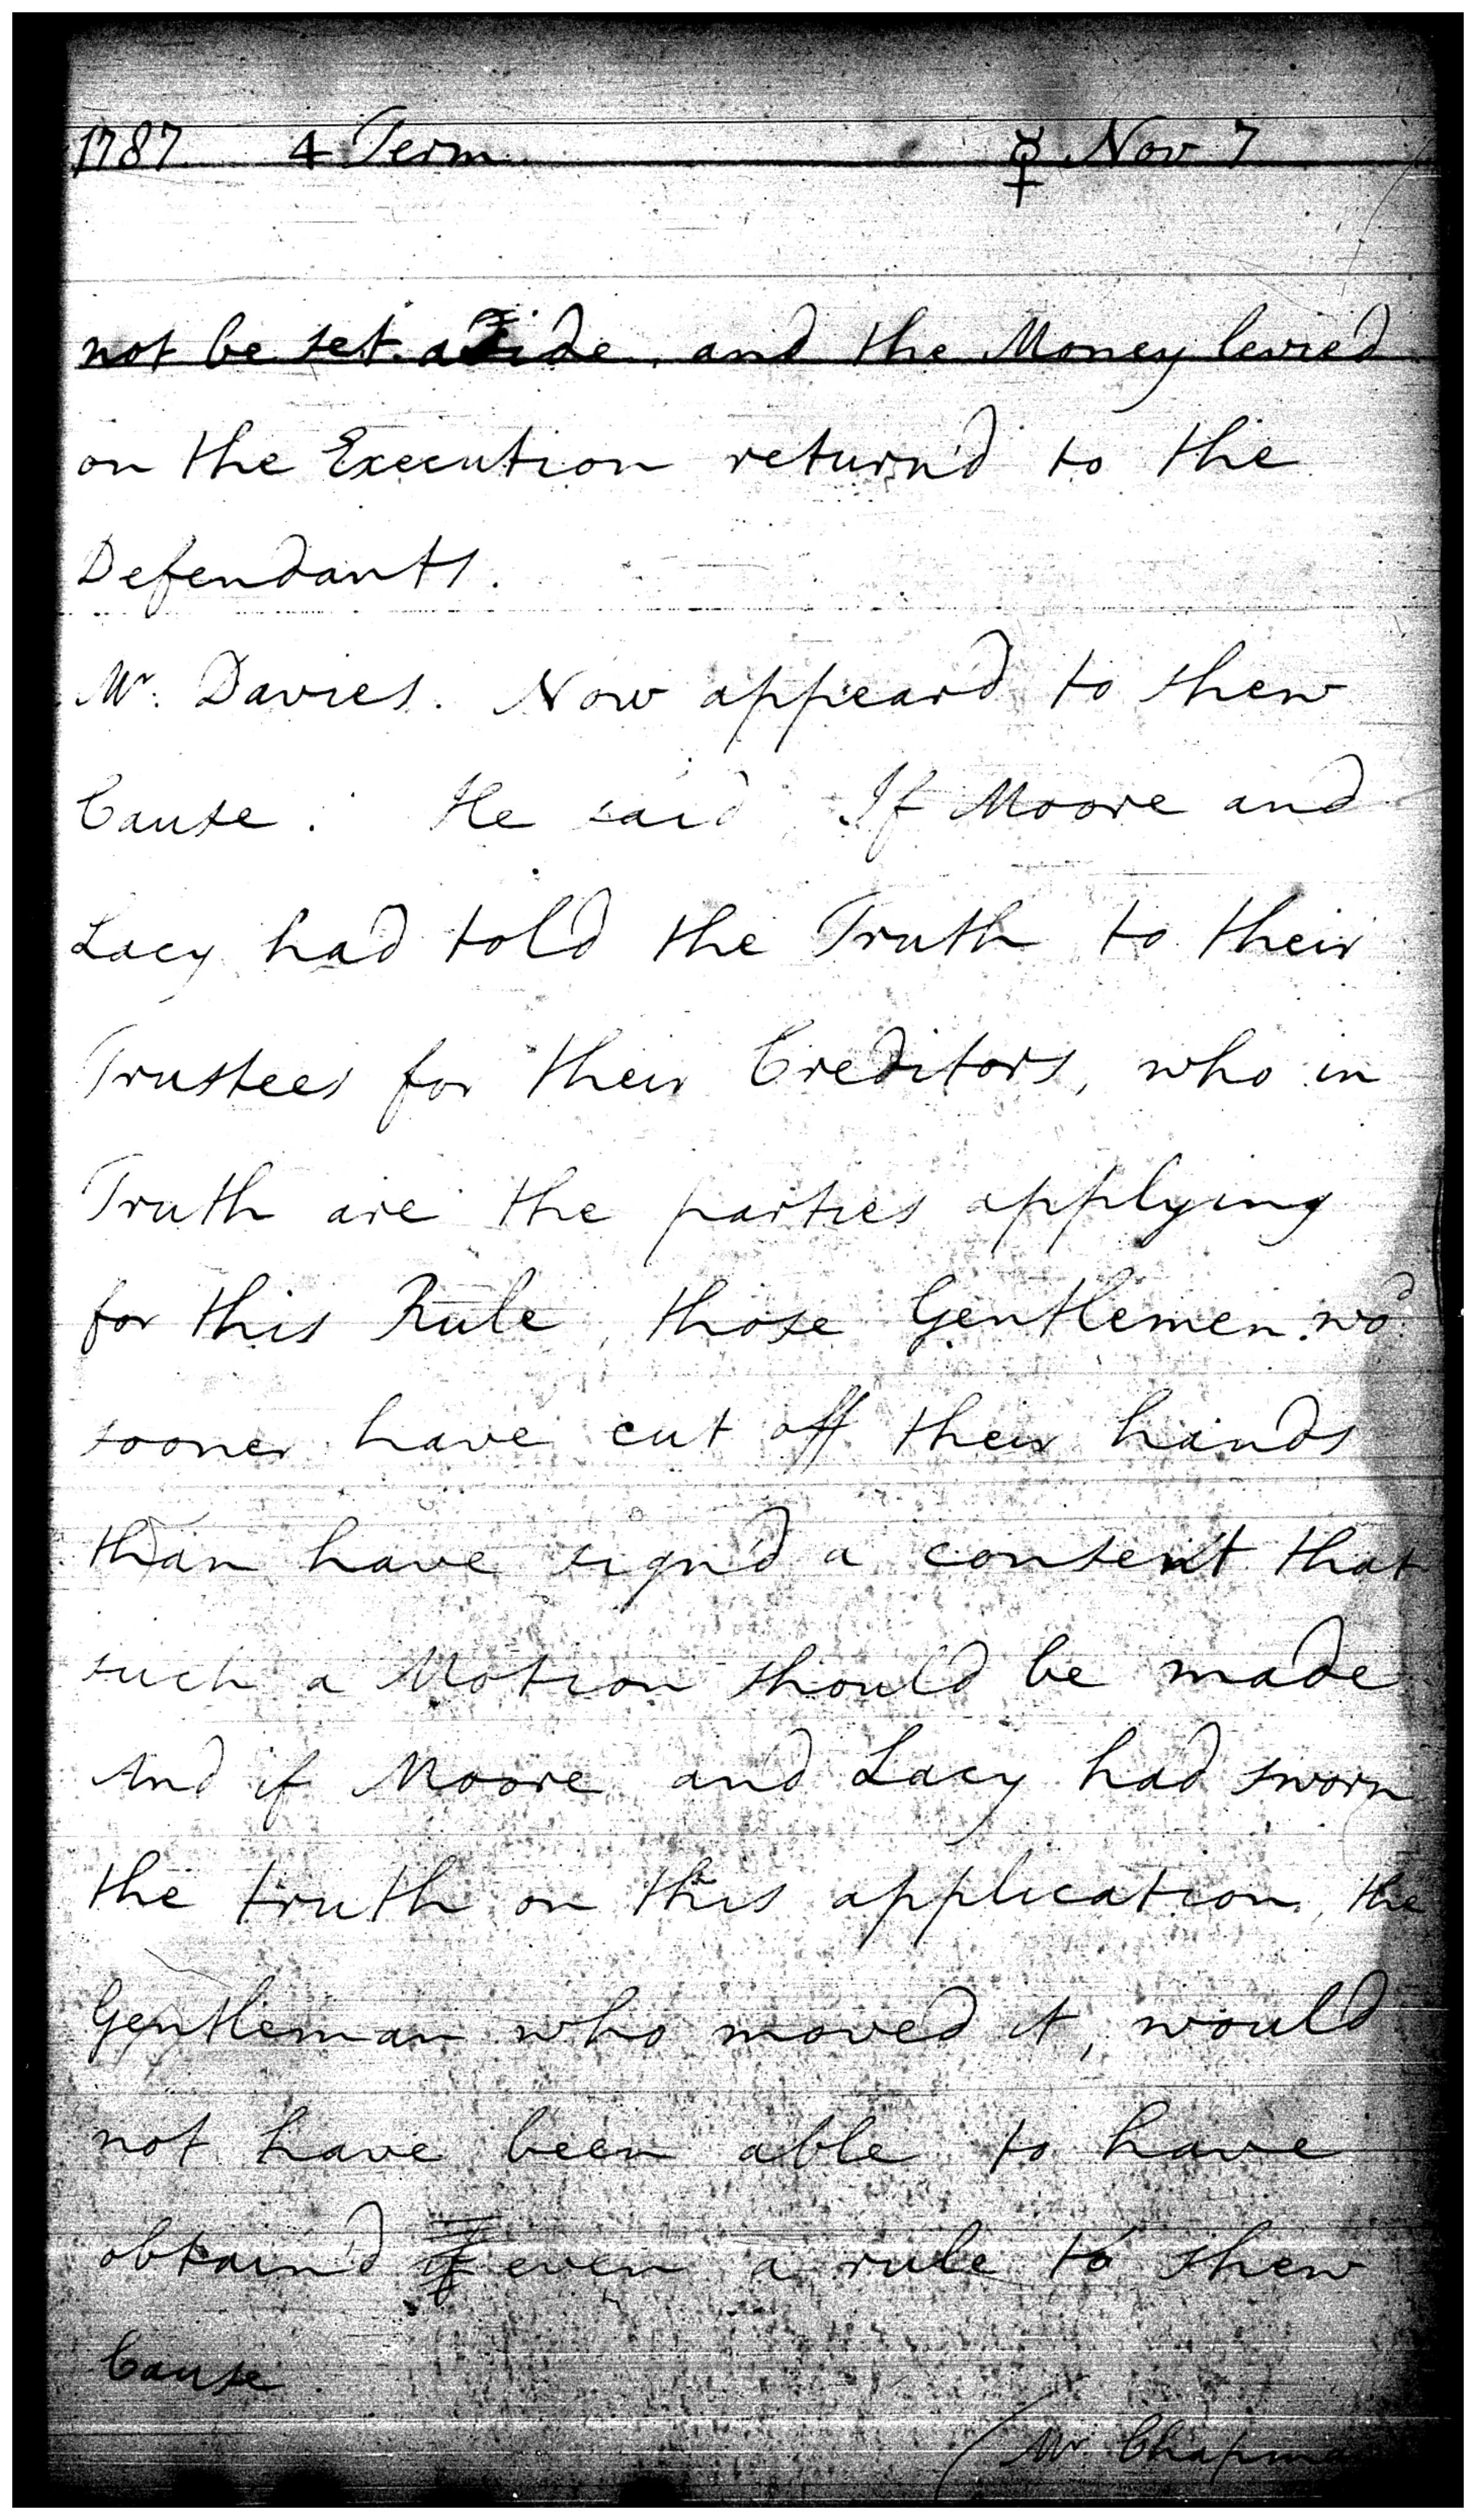 1787. 4 Term. ☿ Nov 7
not be set aside, and the Money levied
on the Execution return'd to the
Defendants.
Mr. Davies. Now appeard to shew
Cause. He said If Moore and
Lacy had told the Truth to their
Trustees for their Creditors, who in
Truth are the parties applying
for this Rule, those Gentlemen wo'd
sooner have cut off their hands
than have sign'd a consent that
such a Motion should be made
And if Moore and Lacy had sworn
the truth on this application, the
Gentleman who moved it, would
not have been able to have
obtain'd even a rule to shew
Cause.
Mr Chapma